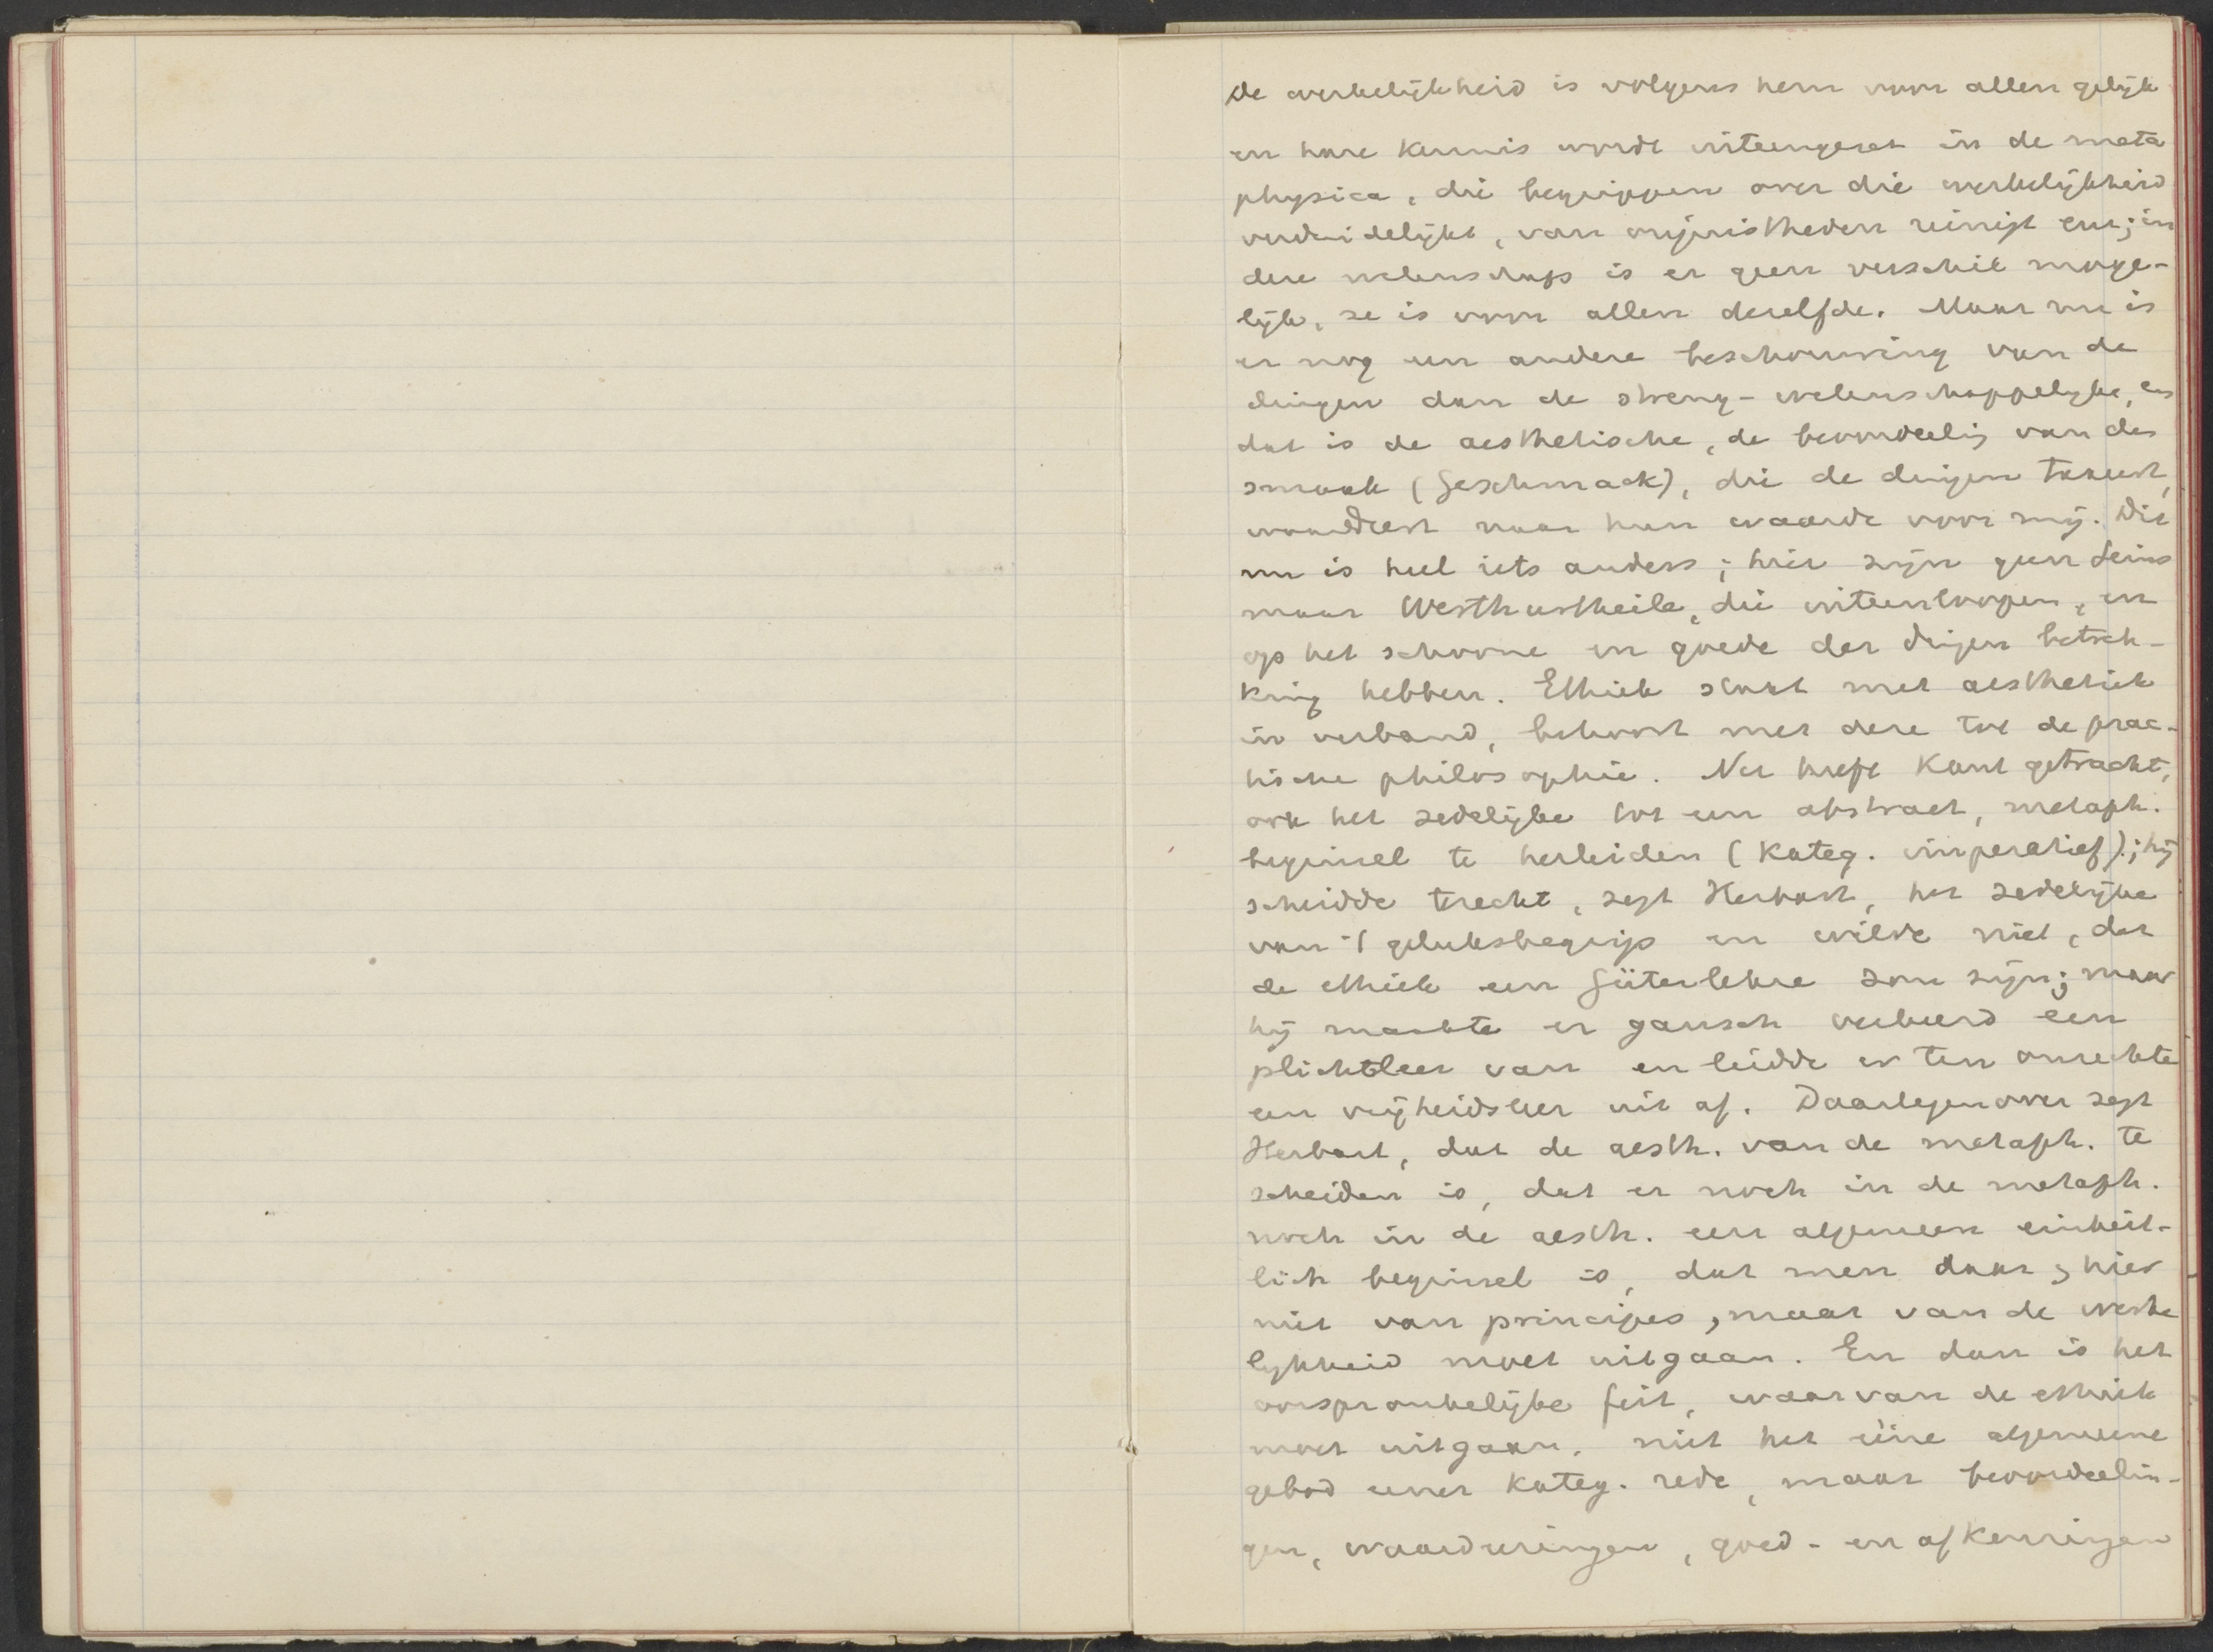 de werkelijkheid is volgens hem voor allen gelijk
en hare kennis wordt uiteengezet in de meta
physica, die begrippen over die werkelijkheid
verduidelijkt, van onjuistheden reinigt enz; in
deze wetenschap is er geen verschil moge-
lijk, ze is voor allen dezelfde. Maar nu is
er nog een andere beschouwing van de
dingen dan de streng-wetenschappelijke, en
dat is de aesthetische, de beoordeelig van den
smaak (Geschmack), die de dingen taxeert,
waardeert naar hun waarde voor mij. Dit
nu is heel iets anders; hier zijn geen Seins
maar Werthurtheile, die uiteenloopen, en
op het schoone en goede der dingen betrek-
king hebben. Ethiek staat met aesthetiek
in verband, behoort met deze tot de prac-
tische philosophie. Nu heeft Kant getracht,
ook het zedelijke tot een abstract, metaph.
beginsel te herleiden (kateg. imperatief); hij
scheidde terecht, zegt Herbart, het zedelijke
van 't geluksbegrip en wilde niet, dat
de ethiek een Güterlehre zou zijn; maar
hij maakte er gansch verkeerd een
plichtleer van en leidde er ten onrechte
een vrijheidsleer uit af. Daartegenover zegt
Herbart, dat de aesth. van de metaph. te
scheiden is, dat er noch in de metaph.
noch in de aesth. een algemeen einheit-
lich beginsel is, dat men daar en hier
niet van principes, maar van de werke
lijkheid moet uitgaan. En dan is het
oorspronkelijke feit, waarvan de ethiek
moet uitgaan, niet het ééne algemeene
gebod eener kateg. rede, maar beoordeelin-
gen, waardeeringen, goed- en afkeuringen